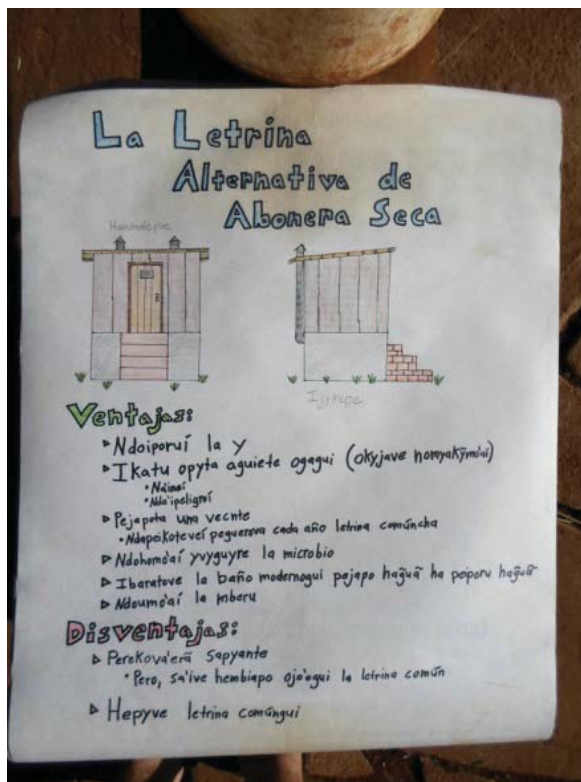 La Letrina
Alternativa de
Abonera Seca
Ventajas:
▹ Ndoiporuí la y
▹ Ikatu opyta aguiete ogagui (okyjave
• Náineí
• Nda'ipeligroí
▹ Pejapota una vecnte
• Ndapeikoteveí peguerova cada año letrina comúncha
▹ Ndohomo'aí yvyguyre la microbio
▹ Ibaratove la baño modernogui pejapo hag̃uã ha peiporu hag̃uã
▹ Ndoumo'aí la mberu
Disventajas:
▹ Perekova'erã sapyante
• Pero, sa'ive hembiapo ojo'ogui la letrina común
▹ Hepyve letrina comúngui